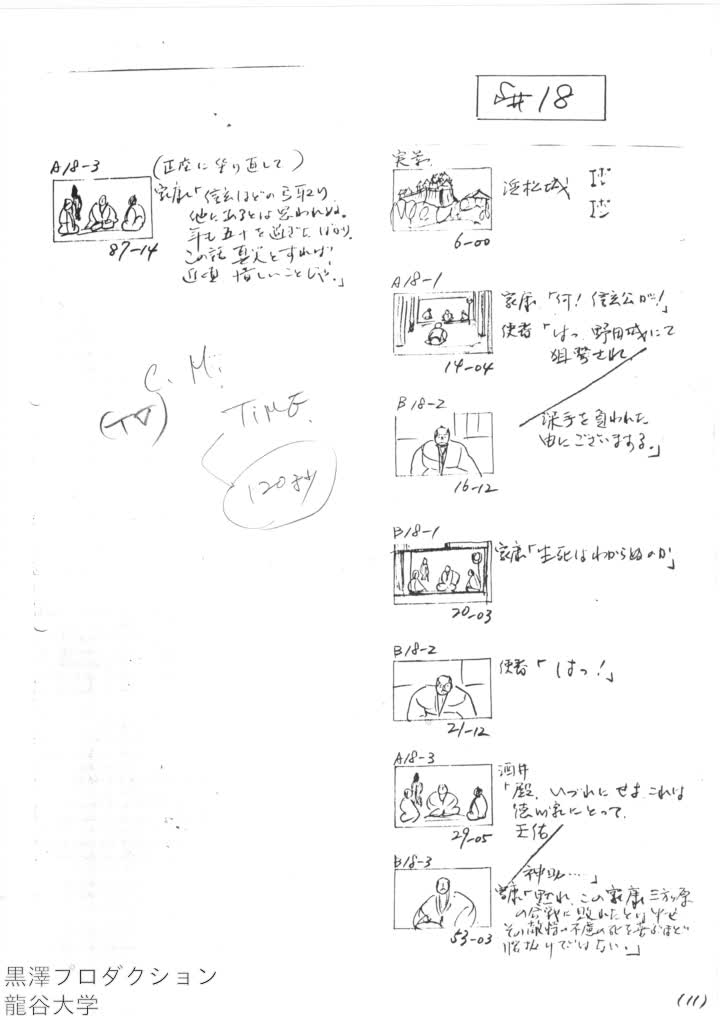 S#18
実景
浜松城
6-00
A18-1
家康「何!信玄公が!」
使者「はっ 野田城にて
狙撃され
14-04
B18-2
深手を負われた
由にございまする。」
16-12
B18-1
家康「生死はわからぬのか」
20-03
B18-2
使者「はっ!」
21-12
A18-3
酒井
「殿、いづれにせよこれは
徳川家にとって、
天佑
29-05
B18-3
神助…」
家康「黙れ、この家康三方ヶ原
の合戦に敗れたとり申せ
その敵将の不慮の死を喜ぶほど
腰抜けではない。」
53-03
A18-3
(正座に坐り直して)
家康「信玄ほどの弓取り
他にあるとは思われぬ。
年も五十を過ぎたばかり、
この話 真実とすれば
近頃 惜しいことじゃ。」
87-14
C.M.
(TV)
TiME.
120秒
(11)
黒澤プロダクション
龍谷大学